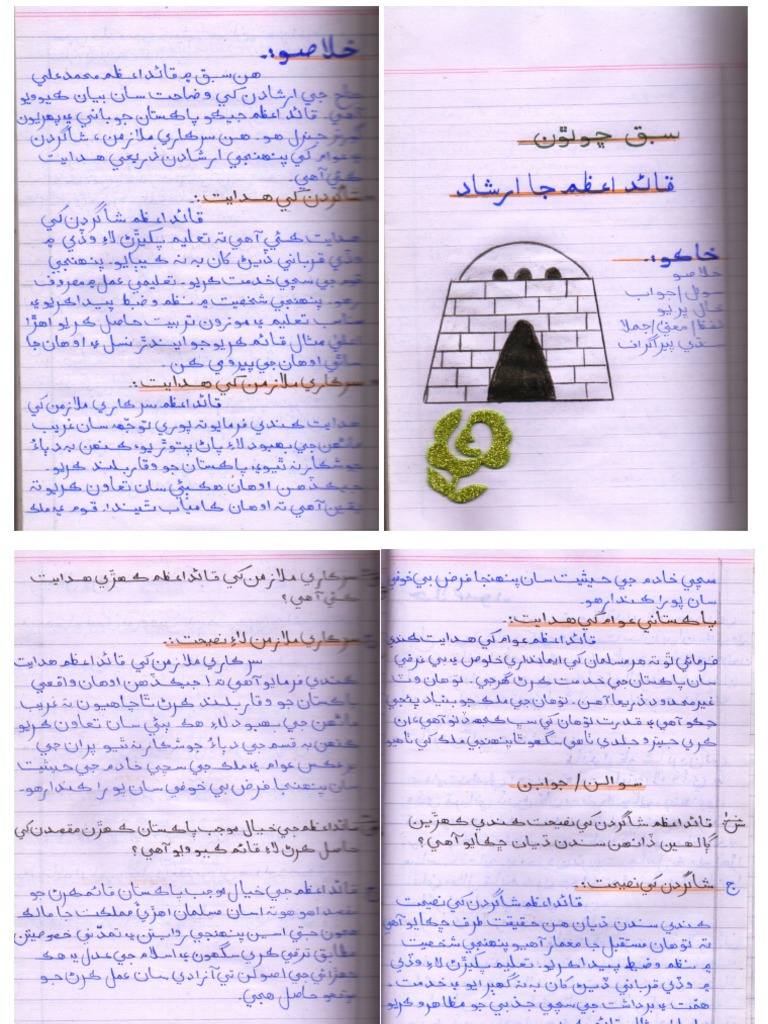 سبق چوٿون
قائداعظم جا ارشاد
خاڪو:.
خلاصو
سوال/جواب
خال پريو
لفظ/معنيٰ/جملا
سنڌي پيراگراف
خلاصو:.
هن سبق ۾ قائداعظم محمد علي
جناح جي ارشادن کي وضاحت سان بيان ڪيو ويو
آهي. قائداعظم جيڪو پاڪستان جو باني ۽ پهريون
گورنر جنرل هو. هن سرڪاري ملازمن، شاگردن
۽ عوام کي پنهنجي ارشادن ذريعي هدايت
ڪئي آهي.
شاگردن کي هدايت:.
قائداعظم شاگردن کي
هدايت ڪئي آهي ته تعليم پکيڙڻ لاءِ وڏي ۾
وڏي قرباني ڏيڻ کان به نه ڪيٻايو. پنهنجي
قوم جي سچي خدمت ڪريو. تعليمي عمل ۾ معروف
رهو. پنهنجي شخصيت ۾ نظم و ضبط پيدا ڪريو ۽
مناسب تعليم ۽ موزون تربيت حاصل ڪريو اهڙا
اعليٰ مثال قائم ڪريو جو ايندڙ نسل ۽ اوهان جا
ساٿي اوهان جي پيروي ڪن.
سرڪاري ملازمن کي هدايت:.
قائداعظم سرڪاري ملازمن کي
هدايت ڪندي فرمايو ته پوري توجهه سان غريب
ماڻهن جي بهبود لاءِ پاڻ پتوڙيو، ڪنهن به دٻاءُ
جو شڪار نه ٿيو ۽ پاڪستان جو وقار بلند ڪريو.
جيڪڏهن اوهان هڪٻئي سان تعاون ڪريو ته
يقين آهي ته اوهان ڪامياب ٿيندا. قوم ۽ ملڪ
سچي خادم جي حيثيت سان پنهنجا فرض بي خوفي
سان پورا ڪندا رهو.
پاڪستاني عوام کي هدايت:.
قائداعظم عوام کي هدايت ڪندي
فرمائي ٿو ته هر مسلمان کي ايمانداري خلوص ۽ بي غرضي
سان پاڪستان جي خدمت ڪرڻ گهرجي. توهان وٽ
غير محدود ذريعا آهن. توهان جي ملڪ جو بنياد پئجي
چڪو آهي ۽ قدرت توهان کي سڀ ڪجهه ڏنو آهي، ان
ڪري جيترو جلدي ٺاهي سگهو ٿا پنهنجي ملڪ کي ٺاهيو
سوالن/جوابن
قائداعظم شاگردن کي نصيحت ڪندي ڪهڙين
ڳالهين ڏانهن سندن ڌيان ڇڪايو آهي؟
ج شاگردن کي نصيحت:.
قائداعظم شاگردن کي نصيحت
ڪندي سندن ڌيان هن حقيقت طرف ڇڪايو آهي
ته توهان مستقبل جا معمار آهيو پنهنجي شخصيت
۾ نظم و ضبط پيدا ڪريو. تعليم پکيڙڻ لاءِ وڏي
۾ وڏي قرباني ڏيڻ کان به نه گهٻرايو ۽ خدمت،
همت ۽ برداشت جي سچي جذبي جو مظاهرو ڪريو
سرڪاري ملازمن کي قائداعظم ڪهڙي هدايت
ڪئي آهي؟
سرڪاري ملازمن لاءِ نصيحت:.
سرڪاري ملازمن کي قائداعظم هدايت
ڪندي فرمايو آهي ته! جيڪڏهن اوهان واقعي
پاڪستان جو وقار بلند ڪرڻ ٿا چاهيو ته غريب
ماڻهن جي بهبود لاءِ هڪ ٻئي سان تعاون ڪريو
ڪنهن به قسم جي دٻاءُ جو شڪار نه ٿيو پر ان جي
برعڪس عوام ۽ ملڪ جي سچي خادم جي حيثيت
سان پنهنجا فرض بي خوفي سان پورا ڪندا رهو.
قائداعظم جي خيال موجب پاڪستان ڪهڙن مقصدن کي
حاصل ڪرڻ لاءِ قائم ڪيو ويو آهي؟
ج قائداعظم جي خيال موجب پاڪستان قائم ڪرڻ جو
مقصد اهو هو ته اسان مسلمان اهڙي مملڪت جا مالڪ
هجون جتي اسين پنهنجي روايتن ۽ تمدني خصوصيتن
مطابق ترقي ڪري سگهون ۽ اسلام جي عدل ۽ هڪ
جهڙائي جي اصولن تي آزادي سان عمل ڪرڻ جو
موقعو حاصل هجي.